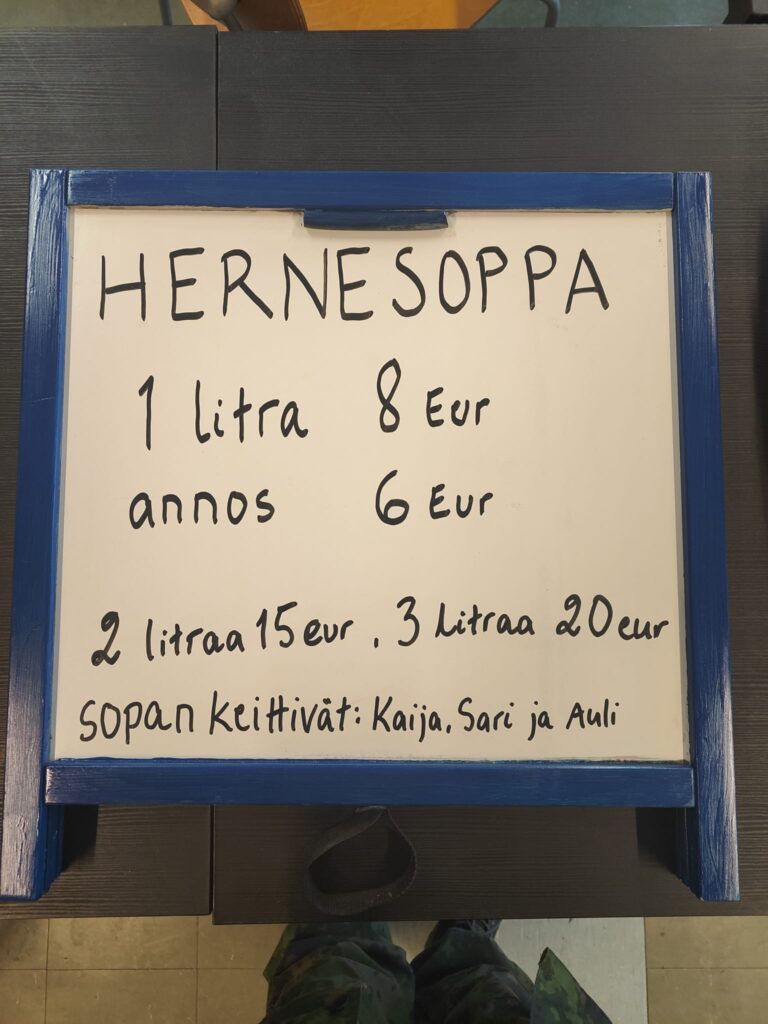 HERNESOPPA
1 litra 8 Eur
annos 6 Eur
2 litraa 15 eur, 3 Litraa 20 eur
sopan keittivät: Kaija, Sari ja Auli